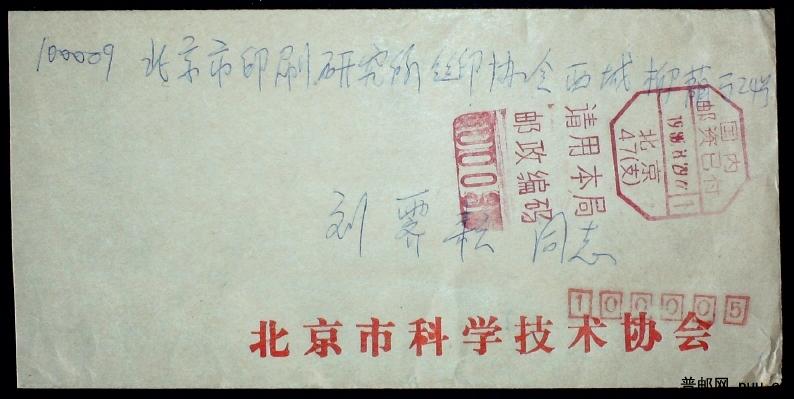 100009 北京市印刷研究所丝印协会西城柳荫街24号
刘霁
同志
国内
邮资已付
北京
47(支)
请用本局
邮政编码
10000
100005
北京市科学技术协会
普邮网